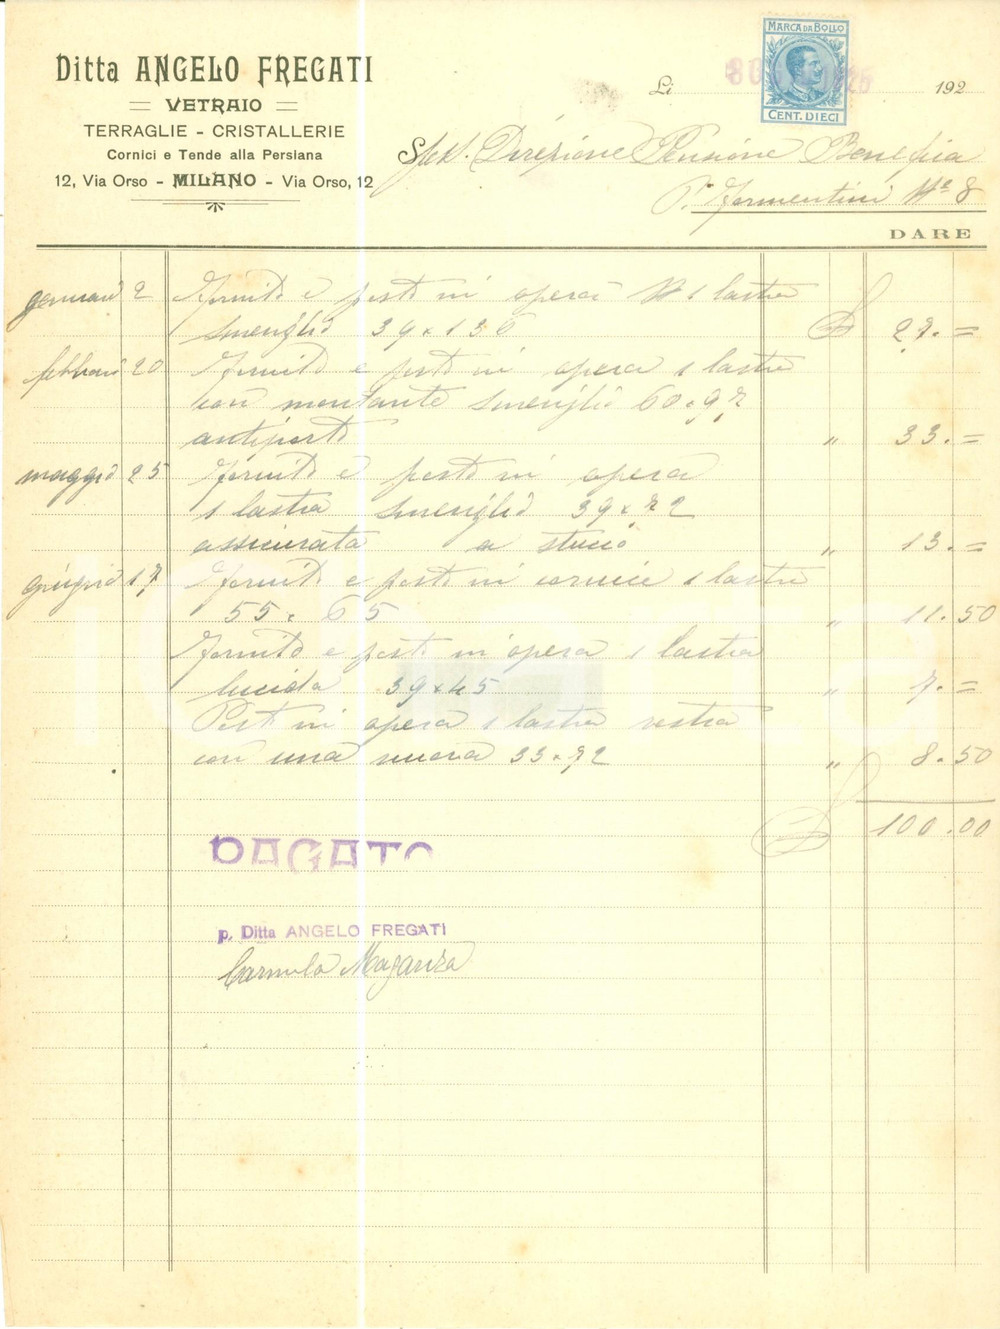 Ditta ANGELO FREGATI
VETRAIO
TERRAGLIE - CRISTALLERIE
Cornici e Tende alla Persiana
12, Via Orso - MILANO - Via Orso, 12
MARCA DA BOLLO
CENT. DIECI
Li 192
Spett. Direzione Pensione Benefica
P. Formentini N° 8
DARE
gennaio 2 Fornito e posto in opera N 1 lastra
smeriglio 39 x 136 £ 27.=
febbraio 20 Fornito e posto in opera 1 lastra
con montante smeriglio 60 x 97
antiporto " 33.=
maggio 25 Fornito e posto in opera
1 lastra smeriglio 39 x 72
assicurata a stucco " 13.=
giugno 17 Fornito e posto in cornice 1 lastra
55 x 65 " 11.50
Fornito e posto in opera 1 lastra
lucida 39 x 45 " 7.=
Posto in opera 1 lastra vostra
con una nuova 33 x 72 " 8.50
£ 100.00
PAGATO
p. Ditta ANGELO FREGATI
Carmela Maganza